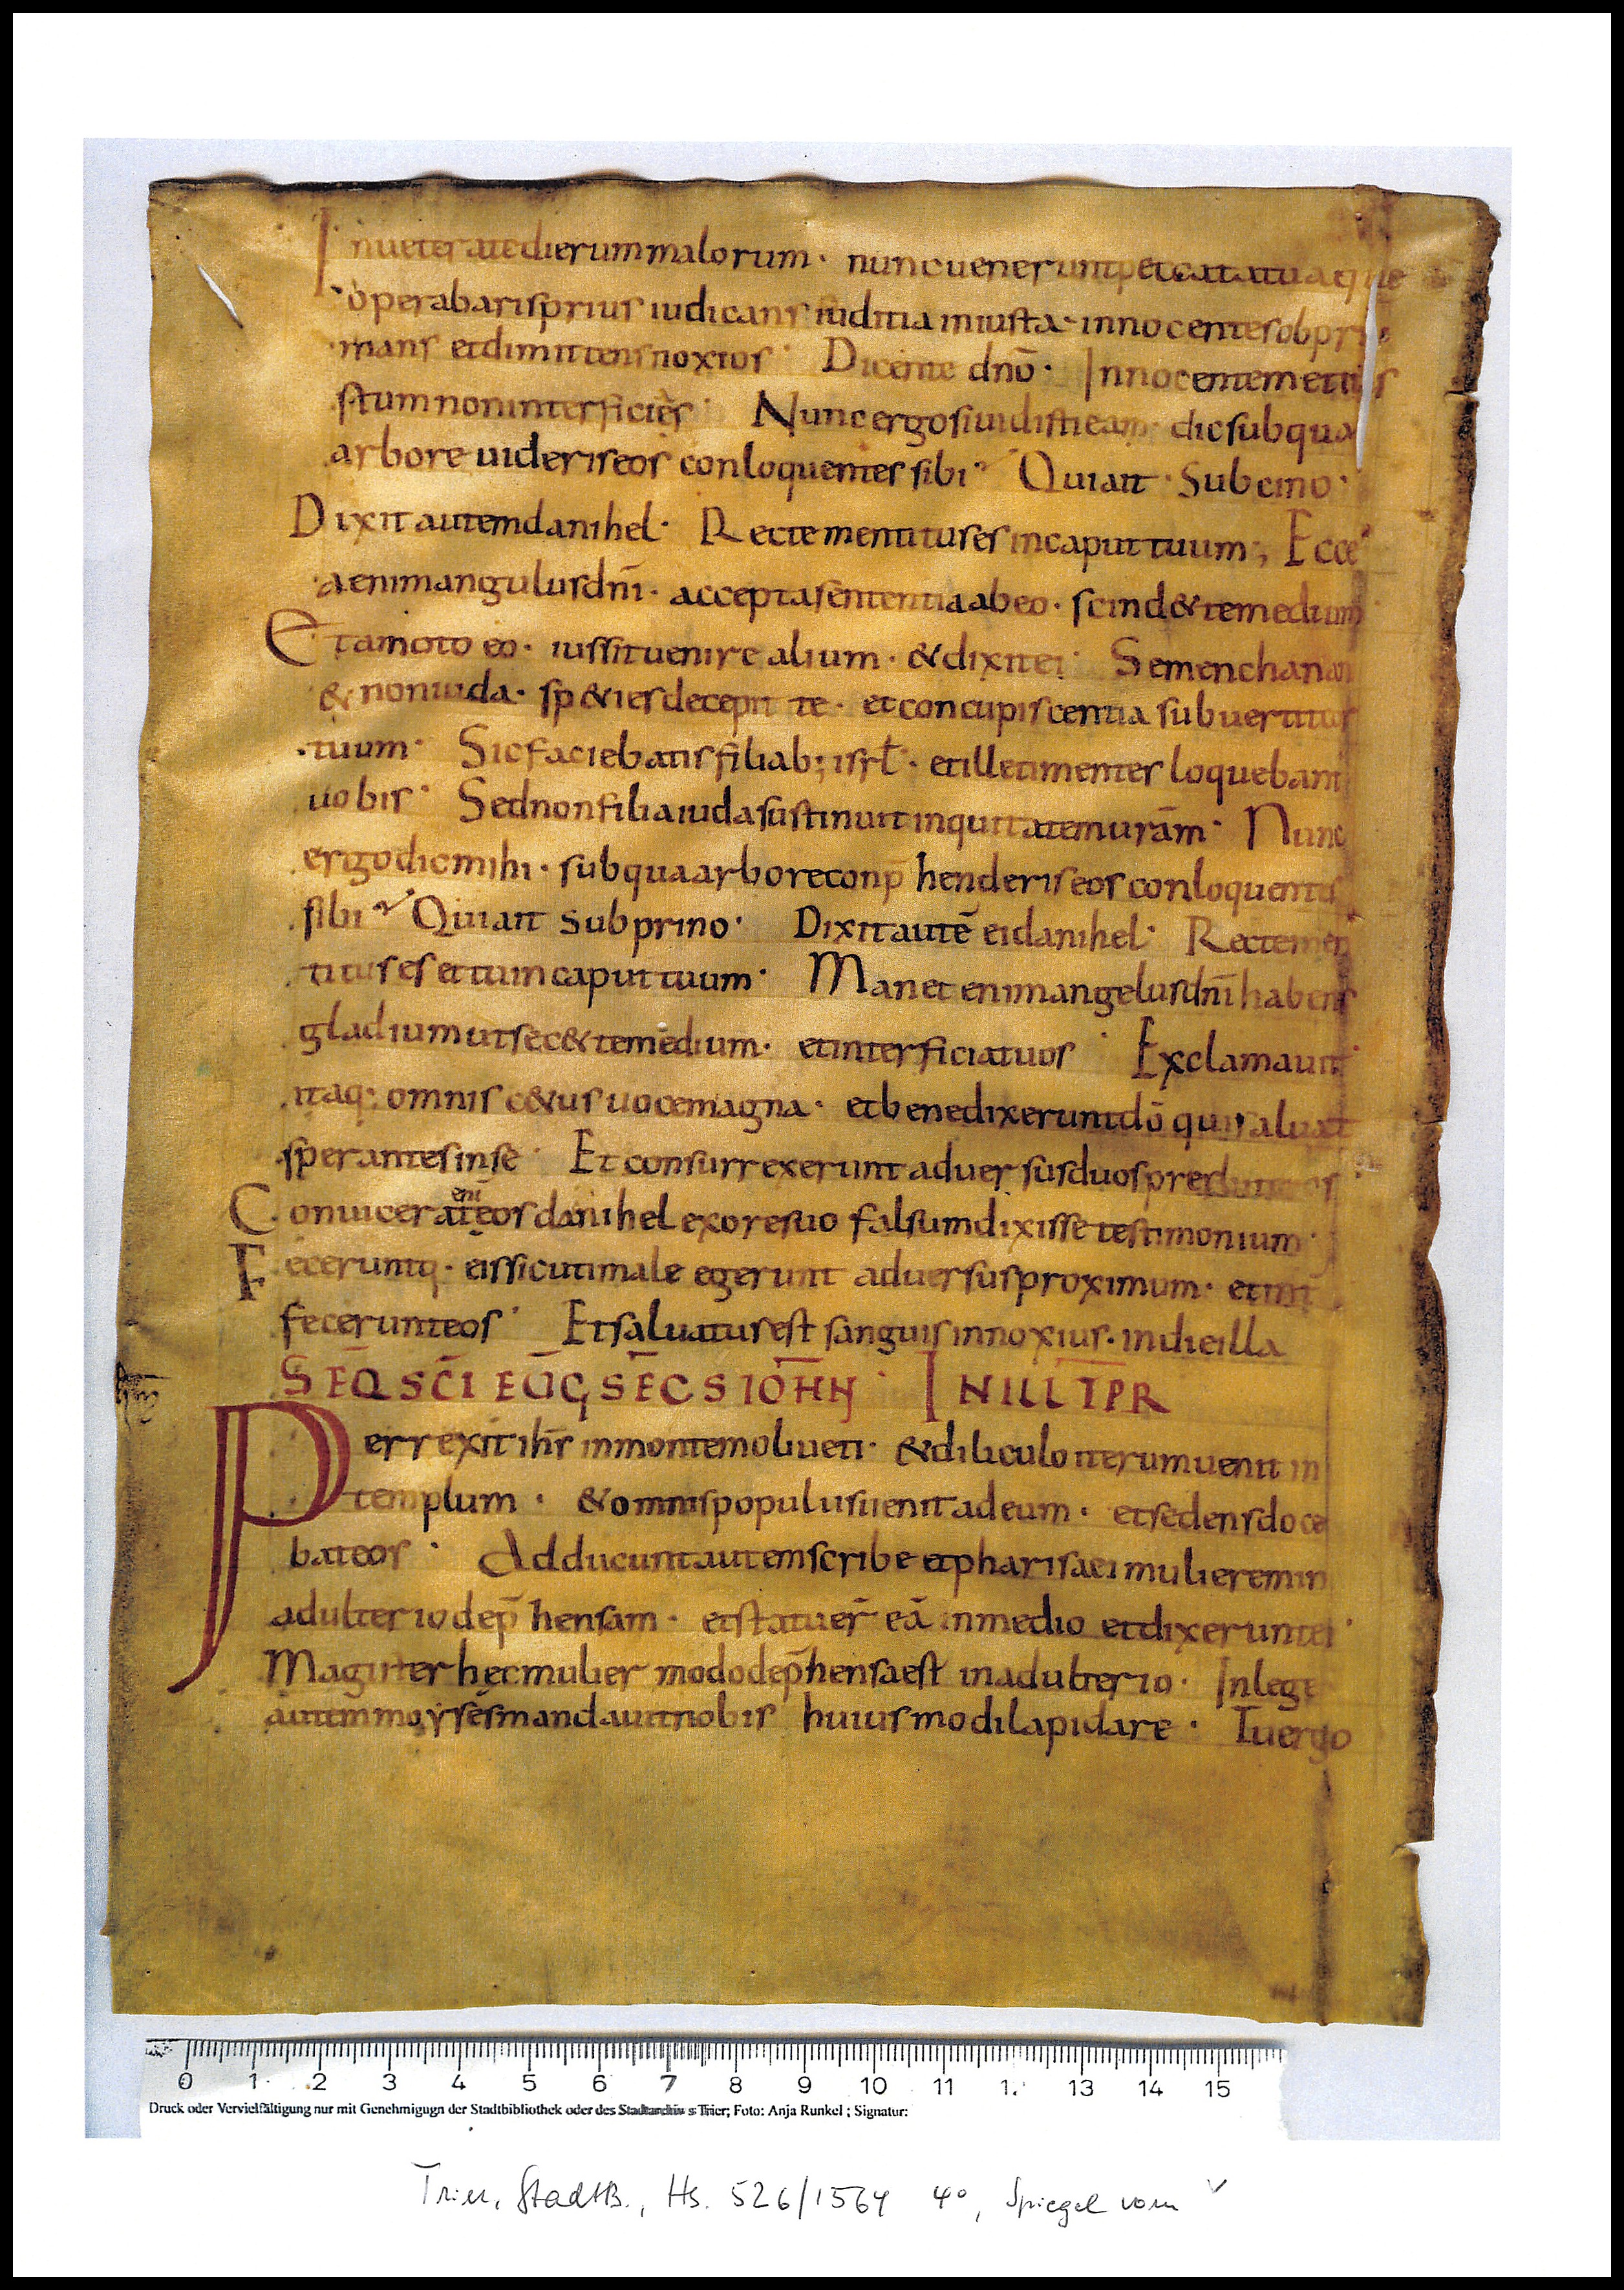 Inueterate dierum malorum · nunc uenerunt peccata tua que
operabaris prius iudicans iuditia iniusta · innocentes obpri
mans et dimittens noxios · Dicente dnō · Innocentem et iu
stum non interficies · Nunc ergo si uidisti eam · dic sub qua
arbore uideris eos conloquentes sibi · Qui ait · Sub cino ·
Dixit autem danihel · Recte mentitus es in caput tuum ; Ecce
enim angulus dnī · accepta sententia ab eo · scind& te medium
Et amoto eo · iussit uenire alium · & dixit ei · Semen chanaan
& non iuda · sp&ies decepit te · et concupiscentia subuertit cor
tuum · Sic faciebatis filiab; isrł · et ille timentes loquebant
uobis · Sed non filia iuda sustinuit inquitatem urām · Nunc
ergo dic mihi · sub qua arbore conp̄henderis eos conloquentes
sibi · Qui ait sub prino · Dixit autē ei danihel · Recte men
titus es et tu in caput tuum · Manet enim angelus dnī habens
gladium ut sec& te medium · et interficiat uos · Exclamauit
itaq· omnis c&us uoce magna · et benedixerunt dō qui saluat
sperantes in se · Et consurrexerunt aduersus duos presbiteros
Conuicerat enī eos danihel ex ore suo falsum dixisse testimonium
Feceruntq· eis sicuti male egerunt aduersus proximum · et int
fecerunt eos · Et saluatus est sanguis innoxius · in die illa
SEQ SCĪ EŪG SEC S IOHN · IN ILL TPR
Perrexit ihs̄ in montem oliueti · & diliculo iterum uenit in
templum · & omnis populus uenit ad eum · et sedens doce
bat eos · Adducunt autem scribe et pharisaei mulierem in
adulterio dep̄hensam · et statuer̄ eā in medio et dixerunt ei ·
Magister hęc mulier modo dep̄hensa est in adulterio · In lege
autem moyses mandauit nobis huiusmodi lapidare · Tu ergo
0 1 2 3 4 5 6 7 8 9 10 11 12 13 14 15
Druck oder Vervielfältigung nur mit Genehmigugn der Stadtbibliothek oder des Stadtarchiv s Trier; Foto: Anja Runkel ; Signatur:
Trier, StadtB., Hs. 526/1564 4°, Spiegel vorn v